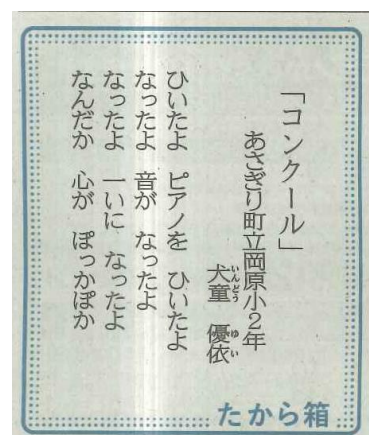 「コンクール」
あさぎり町立岡原小2年
犬童 優依
いんどう ゆい
ひいたよ ピアノを ひいたよ
なったよ 音が なったよ
なったよ 一いに なったよ
なんだか 心が ぽっかぽか
たから箱